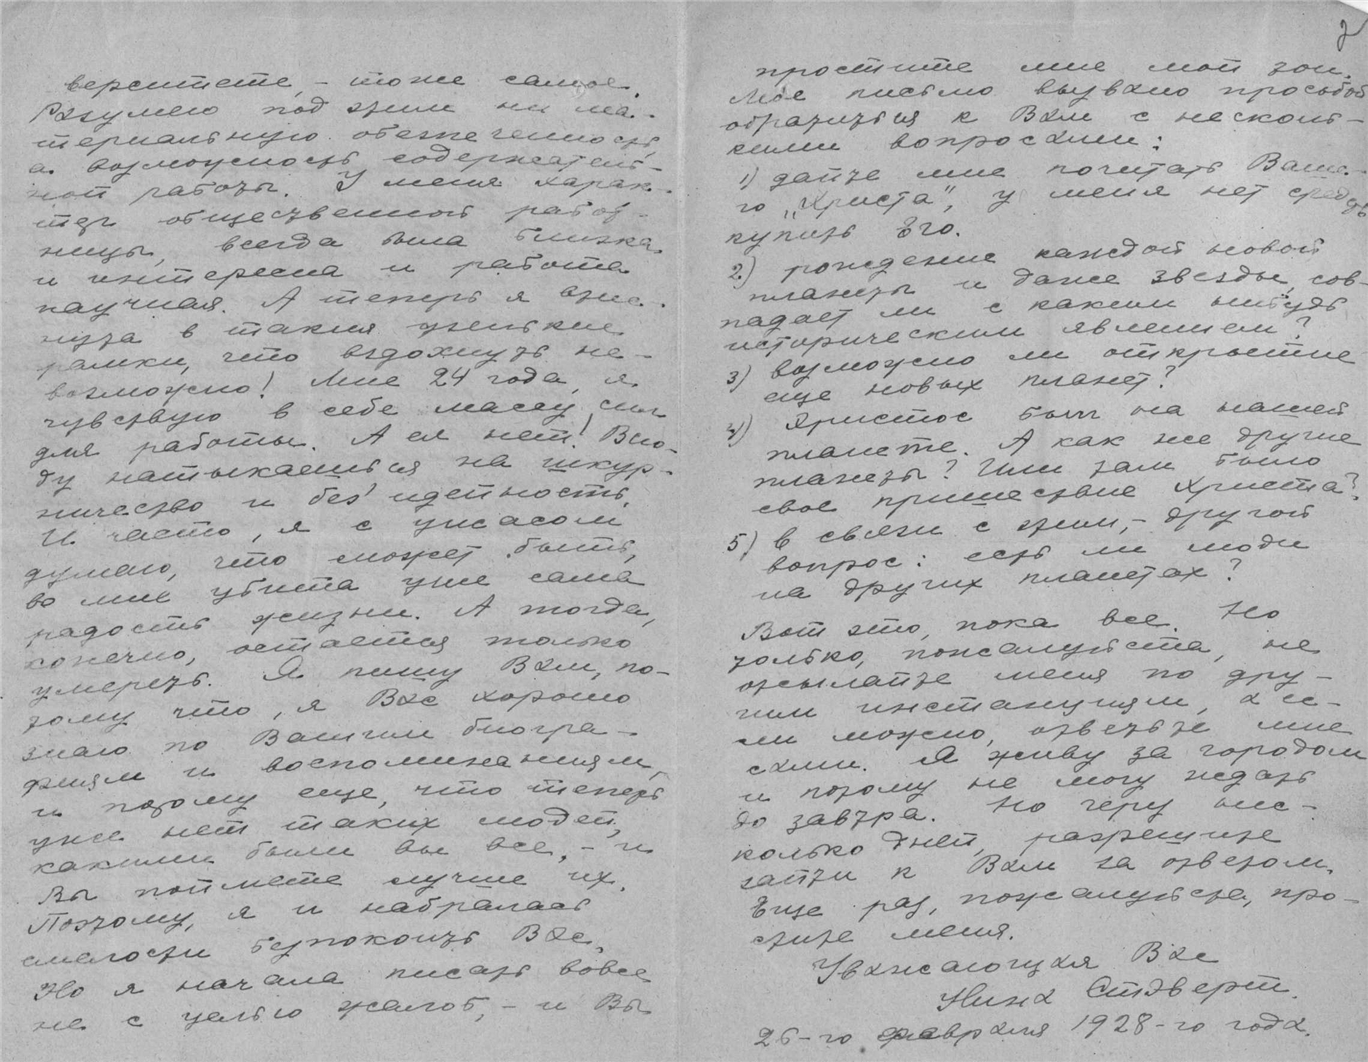 верситете, – тоже самое.
Разумею под этим не ма-
териальную обезпеченность,
а возможность содержатель-
ной работы. У меня харак-
тер общественной работ-
ницы, всегда была близка
и интересна и работа
научная. А теперь я втис-
нута в такия узенькие
рамки, что вздохнуть не-
возможно! Мне 24 года, я
чувствую в себе массу сил
для работы. А ея нет! Всю-
ду натыкаешься на шкур-
ничество и без'идейность.
И часто, я с ужасом
думаю, что может быть,
во мне убита уже сама
радость жизни. А тогда,
конечно, остается только
умереть. Я пишу Вам, по-
тому что, я Вас хорошо
знаю по Вашим биогра-
фиям и воспоминаниям,
и потому еще, что теперь
уже нет таких людей,
какими были вы все, – и
Вы поймете лучше их.
Поэтому, я и набралась
смелости безпокоить Вас.
Но я начала писать вовсе
не с целью жалоб, – и Вы
2
простите мне мой тон.
Мое письмо вызвано просьбой
обратиться к Вам с несколь-
кими вопросами:
1) дайте мне почитать Ваше-
го „Христа", у меня нет средств
купить Его.
2) рождение каждой новой
планеты и даже звезды, сов-
падает ли с каким нибудь
историческим явлением?
3) возможно ли открытие
еще новых планет?
4) Христос был на нашей
планете. А как же другие
планеты? Или там было
свое пришествие Христа?
5) в связи с этим, – другой
вопрос: есть ли люди
на других планетах?
Вот это, пока все. Но
только, пожалуйста, не
отсылайте меня по дру-
гим инстанциям, а ес-
ли можно, ответьте мне
сами. Я живу за городом
и потому не могу ждать
до завтра. Но через нес-
колько дней, разрешите
зайти к Вам за ответом.
Еще раз, пожалуйста, про-
стите меня.
Уважающая Вас
Нина
26-го февраля 1928-го года.